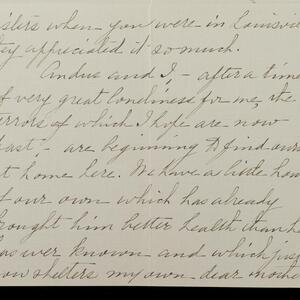 isters when you were in Louisvi
ey appreciated it so much.
Andus and I, - after a time
of very great loneliness for me, the
errors of which I hope are now
past - are beginning to find ours
at home here. We have a little hom
of our own which has already
rought him better health than h
as ever known and which just
now shelters my own dear mothe